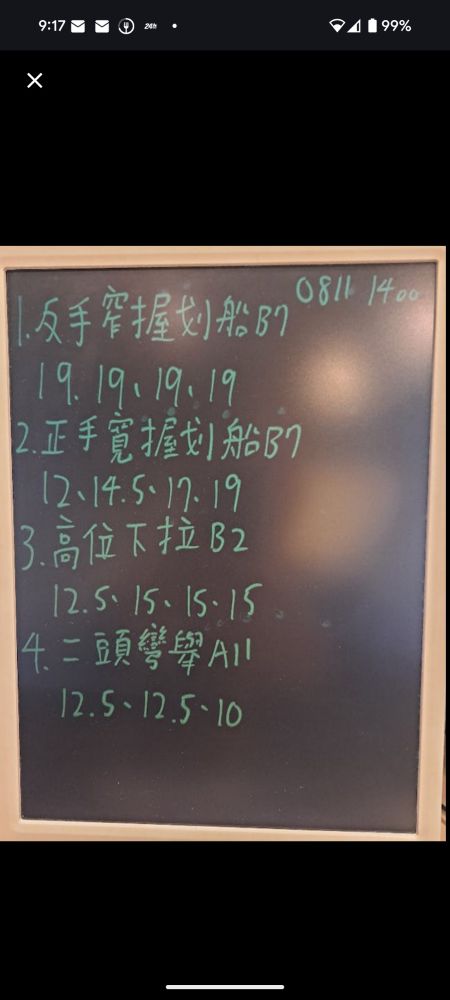 9:17 24h 99%
0811 1400
1.反手窄握划船B7
19.19、19、19
2.正手寬握划船B7
12、14.5、17、19
3.高位下拉B2
12.5、15、15、15
4.二頭彎舉A11
12.5、12.5、10